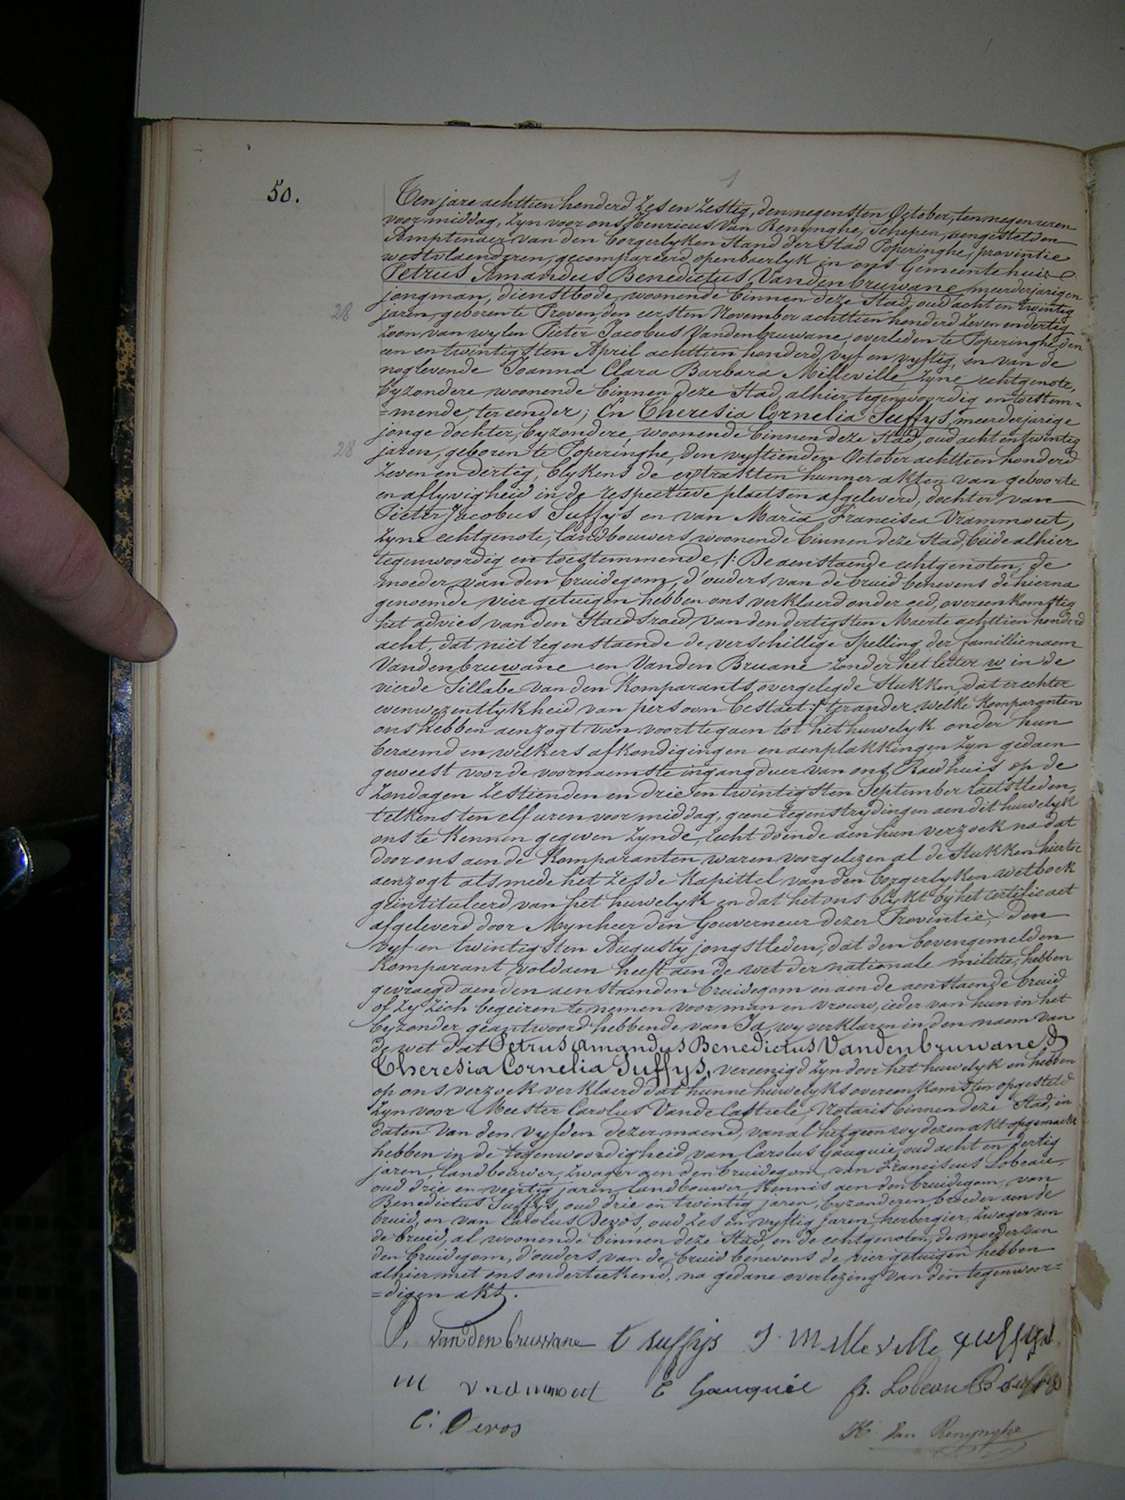 50.
Ten jare achttien honderd zes en zestig, den negensten October, ten negen uren
voormiddag, zyn voor ons Henricus Van Renynghe, schepen, aengestelden
Amptenaer van den borgerlyken Stand der Stad Poperinghe, provintie
westvlaenderen, gecompareerd openbaerlyk in ons Gemeentehuis
Petrus Amandus Benedictus Vandenbruwane meerderjarigen
jongman, dienstbode, woonende binnen deze Stad, oud acht en twintig
28
jaren, geboren te Proven, den eersten November achttien honderd zeven en dertig
zoon van wylen Pieter Jacobus Vandenbruwane, overleden te Poperinghe, den
een en twintigsten April achttien honderd vyf en vyftig, en van de
noglevende Joanna Clara Barbara Milleville, zyne echtgenote,
byzondere woonende binnen deze Stad, alhier tegenwoordig en toestem=
=mende, ter eender; En Theresia Cornelia Suffys, meerderjarige
jonge dochter, byzondere, woonende binnen deze Stad, oud acht en twintig
28
jaren, geboren te Poperinghe, den vyftienden October achttien honderd
zeven en dertig, blykens de extrakten hunner akten van geboorte
en aflyvigheid in de respectieve plaetsen afgeleverd, dochter van
Pieter Jacobus Suffys en van Maria Francisca Vrammout,
zyne echtgenote, landbouwers, woonende binnen deze Stad, beide alhier
tegenwoordig en toestemmende /: De aenstaende echtgenoten, de
moeder van den bruidegom, d'ouders van de bruid benevens de hierna
genoemde vier getuigen hebben ons verklaerd onder eed, overeenkomstig
het advies van den Staedsraed van den dertigsten Maerte achttien honderd
acht, dat niet tegenstaende de verschillige spelling der familienaem
Vandenbruwane en Vanden Bruane zonder het letter w in de
vierde Sillabe van den Komparants overgelegde stukken, dat er echter
evenwezentlykheid van persoon bestaet / ter ander, welke Komparanten
ons hebben aenzogt van voort te gaen tot het huwelyk onder hun
beraemd en welkers afkondigingen en aenplakkingen zyn gedaen
geweest voor de voornaemste ingangdeur van ons Raedhuis op de
zondagen zestienden en drie en twintigsten September laetstleden,
telkens ten elf uren voormiddag, geene tegenstrydingen aen dit huwelyk
ons te kennen gegeven zynde, recht doende aen hun verzoek na dat
door ons aen de Komparanten waren voorgelezen al de stukken hiertoe
aenzogt als mede het zesde kapittel van den borgerlyken wetboek
geïntituleerd van het huwelyk en dat het ons blykt by het certificaet
afgeleverd door Mynheer den Gouverneur dezer Provintie, den
vyf en twintigsten Augusty jongstleden, dat den bovengemelden
Komparant voldaen heeft aen de wet der nationale militie, hebben
gevraegd aen den aenstaenden bruidegom en aen de aenstaende bruid
of zy zich begeiren te nemen voor man en vrouw, ieder van hun in het
byzonder geantwoord hebbende van Ja, wy verklaren in den naem van
de wet dat Petrus Amandus Benedictus Vandenbruwane &
Theresia Cornelia Suffys, vereenigd zyn door het huwelyk en hebben
op ons verzoek verklaerd dat hunne huwelyks overeenkomsten opgesteld
zyn voor Meester Carolus Van de Casteele, Notaris binnen deze Stad, in
daten van den vyfden dezer maend, van al het geen wy dezen akt opgemaekt
hebben in de tegenwoordigheid van Carolus Gauquie, oud acht en dertig
jaren, landbouwer, zwager aen den bruidegom, van Franciscus Lobeau,
oud drie en veertig jaren, landbouwer, kennis aen den bruidegom, van
Benedictus Suffys, oud drie en twintig jaren, byzonderen, broeder aen de
bruid, en van Carolus Devos, oud zes en vyftig jaren, herbergier, zwager aen
de bruid, al woonende binnen deze Stad, en de echtgenoten, de moeder van
den bruidegom, d'ouders van de bruid benevens de vier getuigen hebben
alhier met ons onderteekend, na gedane overlezing van den tegenwoor=
=digen akt.
P. vandenbruwane t suffys J. Milleville suffys
m vrammout C Gauquie fr. Lobeau B suffys
C: Devos H Van Renynghe